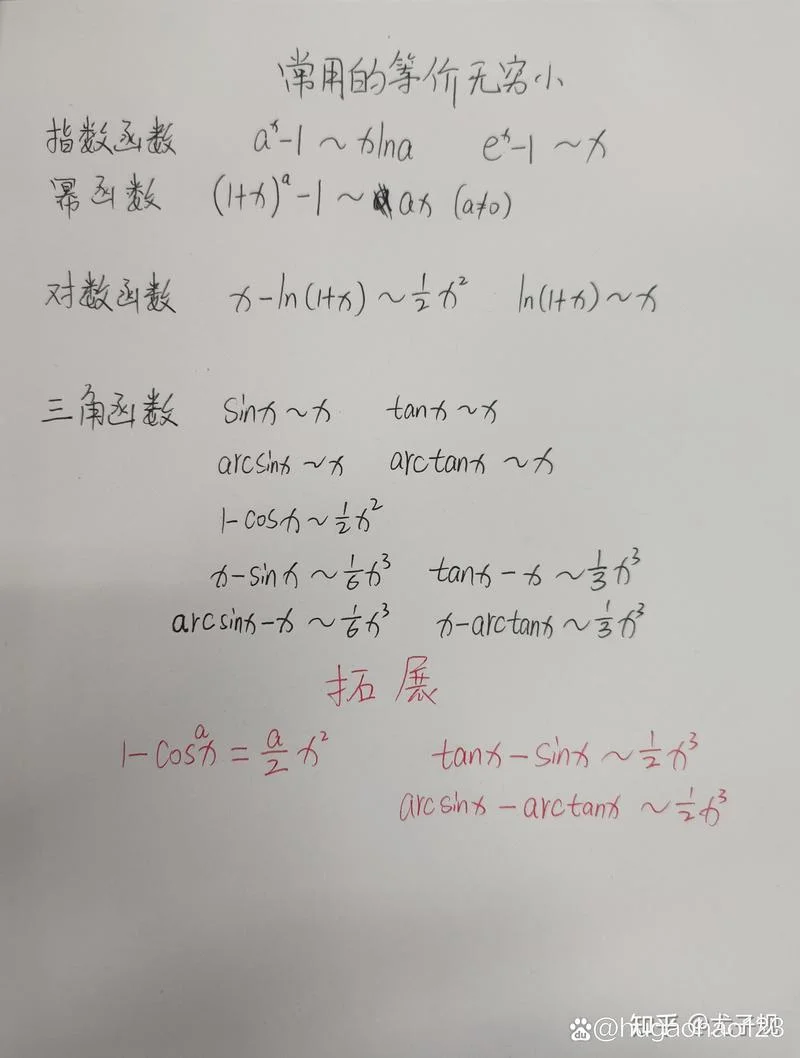 常用的等价无穷小
指数函数 aˣ-1 ~ xlna eˣ-1 ~ x
幂函数 (1+x)ᵃ-1 ~ ax (a≠0)
对数函数 x-ln(1+x) ~ 1/2 x² ln(1+x) ~ x
三角函数 sinx ~ x tanx ~ x
arcsinx ~ x arctanx ~ x
1-cosx ~ 1/2 x²
x-sinx ~ 1/6 x³ tanx-x ~ 1/3 x³
arcsinx-x ~ 1/6 x³ x-arctanx ~ 1/3 x³
拓展
1-cosᵃx = a/2 x² tanx-sinx ~ 1/2 x³
arcsinx-arctanx ~ 1/2 x³